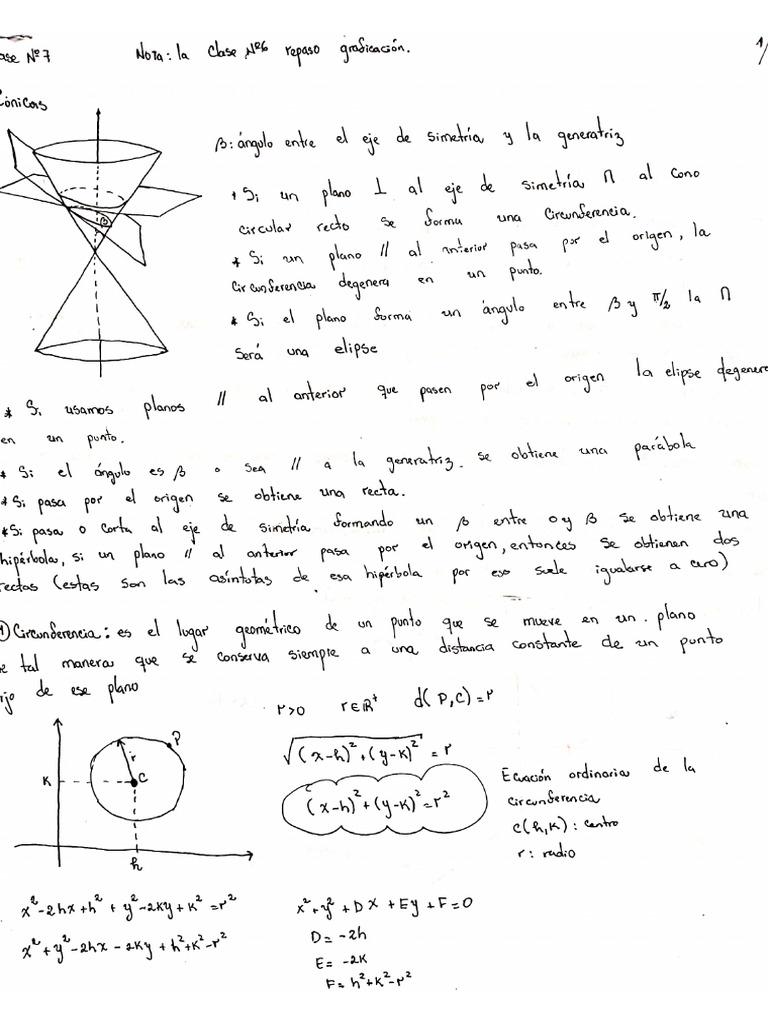 ase Nº7 Nota: la Clase Nº6 repaso graficación. 1/
Cónicas
β: ángulo entre el eje de simetría y la generatriz
* Si un plano ⊥ al eje de simetría ∩ al cono
circular recto se forma una Circunferencia.
* Si un plano // al anterior pasa por el origen, la
Circunferencia degenera en un punto.
* Si el plano forma un ángulo entre β y π/2 la ∩
será una elipse
β
* Si usamos planos // al anterior que pasen por el origen la elipse degenera
en un punto.
* Si el ángulo es β o sea // a la generatriz. se obtiene una parábola
* Si pasa por el origen se obtiene una recta.
* Si pasa o corta al eje de simetría formando un β entre 0 y β se obtiene una
hipérbola, si un plano // al anterior pasa por el origen, entonces se obtienen dos
rectas (estas son las asíntotas de esa hipérbola por eso suele igualarse a cero)
1) Circunferencia: es el lugar geométrico de un punto que se mueve en un. plano
de tal manera que se conserva siempre a una distancia constante de un punto
fijo de ese plano
r>0 r∈R⁺ d(P,C)=r
P
r
K C
h
√(x-h)²+(y-k)² = r
(x-h)²+(y-k)²=r²
Ecuación ordinaria de la
circunferencia
c(h,k): centro
r: radio
x²-2hx+h²+y²-2ky+k²=r²
x²+y²-2hx-2ky+h²+k²-r²
x²+y²+Dx+Ey+F=0
D=-2h
E=-2k
F=h²+k²-r²